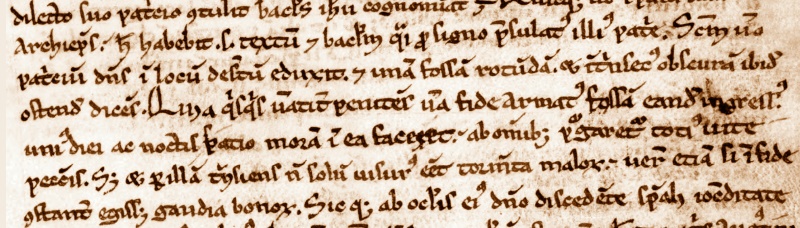 dilecto suo pat̾cio ꝯtulit bacl̅s ihu̅ cognominat ⁊
Archiep̅s. h̅ habebit .s. textu̅ ⁊ bacl̅m q̅i ꝓ signo p̅sulat᾽ illi᾽ pat̾e. Sc̅m u̅o
pat̾ciu̅ dn̅s i̅ locu̅ des̾tu̅ eduxit. ⁊ una̅ fossa̅ rotu̅da̅. & int̾nsec᾽ obscura̅ ibid̅
ostend̅ dice̅s. Q̅uia q̅sq̅s u̅acit̾ penite̅s u̅a fide armat᾽ fossa̅ eand̅ ingress᾽
uni᾽ diei ac noctis spatio mora̅ i̅ ea faceret. ab omib; p᾽garet᾽ toti᾽ uite
pecc̅is. S; & ꝑ illa̅ t̾nsiens n̅ solu̅ uisur᾽ e̅et torm̅ta maloꝝ. ueꝝ etia̅ si i̅ fide
ꝯstant̾ egiss; gaudia bonoꝝ. Sic q; ab ocl̅is ei᾽ dn̅o discede̅te sp̅ali iocu̅ditate